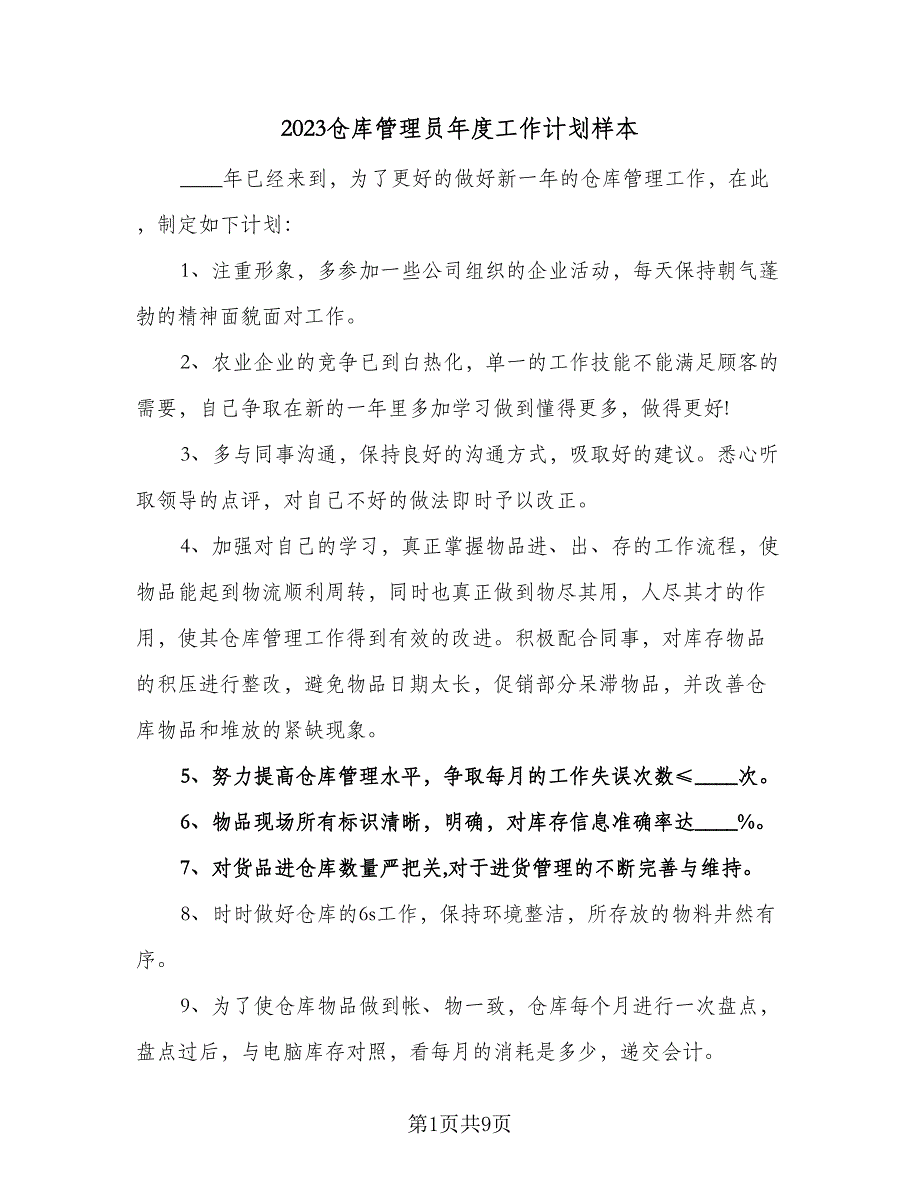 2023仓库管理员年度工作计划样本
____年已经来到，为了更好的做好新一年的仓库管理工作，在此
，制定如下计划：
1、注重形象，多参加一些公司组织的企业活动，每天保持朝气蓬
勃的精神面貌面对工作。
2、农业企业的竞争已到白热化，单一的工作技能不能满足顾客的
需要，自己争取在新的一年里多加学习做到懂得更多，做得更好!
3、多与同事沟通，保持良好的沟通方式，吸取好的建议。悉心听
取领导的点评，对自己不好的做法即时予以改正。
4、加强对自己的学习，真正掌握物品进、出、存的工作流程，使
物品能起到物流顺利周转，同时也真正做到物尽其用，人尽其才的作
用，使其仓库管理工作得到有效的改进。积极配合同事，对库存物品
的积压进行整改，避免物品日期太长，促销部分呆滞物品，并改善仓
库物品和堆放的紧缺现象。
5、努力提高仓库管理水平，争取每月的工作失误次数≤____次。
6、物品现场所有标识清晰，明确，对库存信息准确率达____%。
7、对货品进仓库数量严把关,对于进货管理的不断完善与维持。
8、时时做好仓库的6s工作，保持环境整洁，所存放的物料井然有
序。
9、为了使仓库物品做到帐、物一致，仓库每个月进行一次盘点，
盘点过后，与电脑库存对照，看每月的消耗是多少，递交会计。
第1页共9页